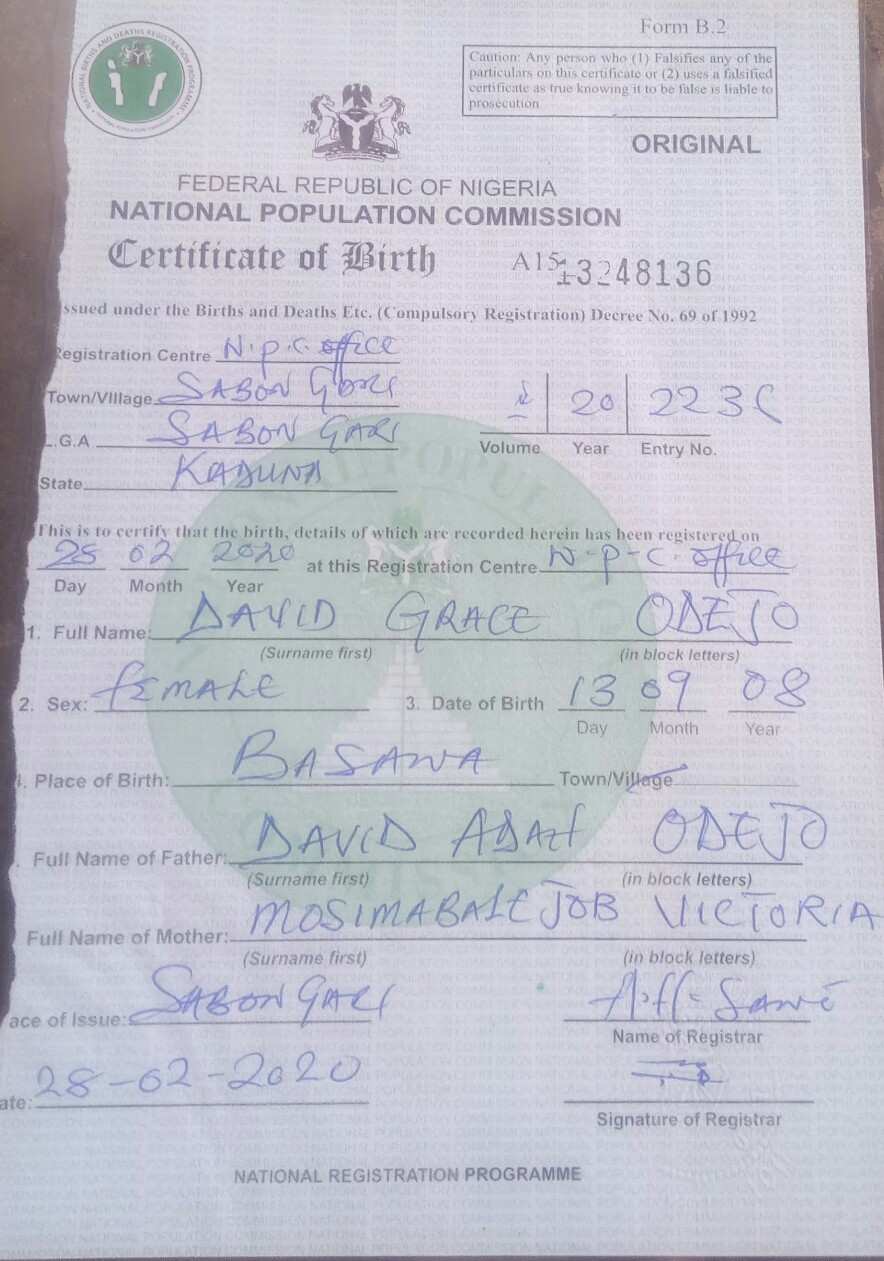 Form B.2
NATIONAL BIRTHS AND DEATHS REGISTRATION PROGRAMME
NATIONAL POPULATION COMMISSION
Caution: Any person who (1) Falsifies any of the
particulars on this certificate or (2) uses a falsified
certificate as true knowing it to be false is liable to
prosecution
ORIGINAL
FEDERAL REPUBLIC OF NIGERIA
NATIONAL POPULATION COMMISSION
Certificate of Birth
A15 13248136
ssued under the Births and Deaths Etc. (Compulsory Registration) Decree No. 69 of 1992
Registration Centre N.p.c. office
Town/VIllage SABON GARI
L.G.A SABON GARI
20 223
Volume Year Entry No.
State KADUNA
This is to certify that the birth, details of which are recorded herein has been registered on
28 02 2020 at this Registration Centre N-p-c. office
Day Month Year
1. Full Name: DAVID GRACE ODEJO
(Surname first) (in block letters)
2. Sex: FEMALE 3. Date of Birth 13 09 08
Day Month Year
Place of Birth: BASAWA Town/Village
Full Name of Father: DAVID ADAH ODEJO
(Surname first) (in block letters)
Full Name of Mother: MOSIMABALE JOB VICTORIA
(Surname first) (in block letters)
ace of Issue: SABON GARI
Name of Registrar
ate: 28-02-2020
Signature of Registrar
NATIONAL REGISTRATION PROGRAMME